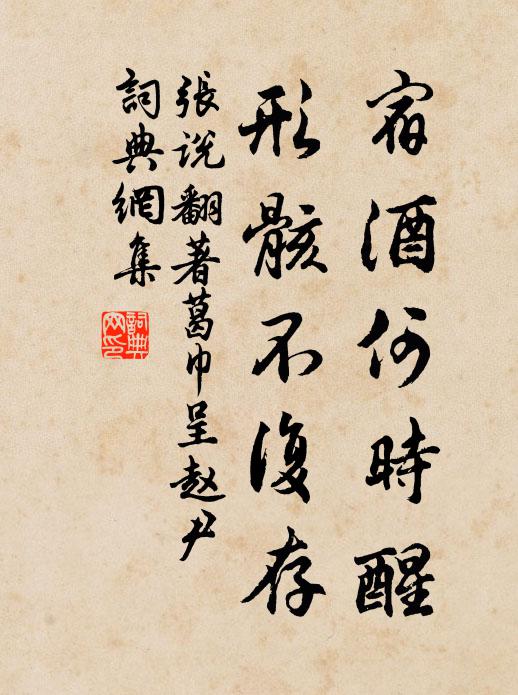 宿酒何時醒
形骸不復存
張说翻著葛巾呈赵尹
詞典網集
詞典网印